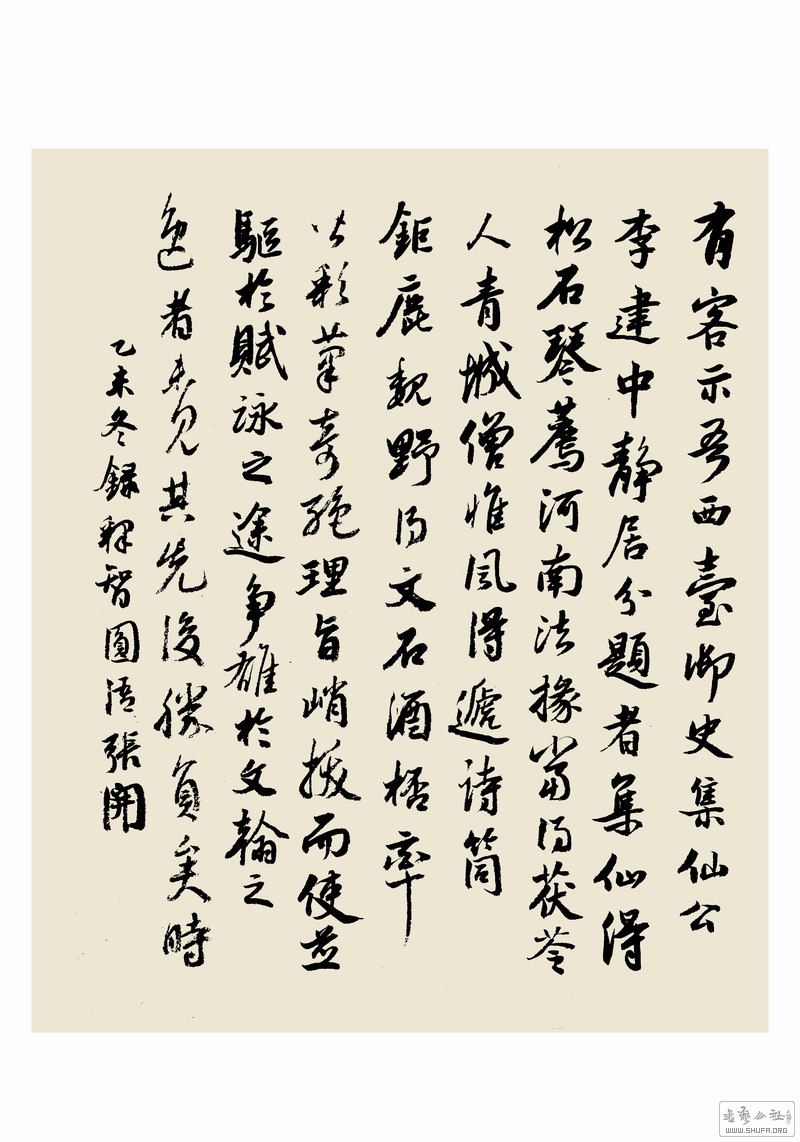 有客示吾西臺御史集仙公
李建中靜居分題者集仙得
松石琴薦河南法掾當得茯苓
人青城僧惟凤得遞诗筒
鉅鹿魏野得文石酒榼率
皆彩華奇絶理旨峭拔而使並
驅於賦詠之途争雄於文翰之
邑者未見其先後勝負矣時
乙未冬録釋智圓語張開
書藝公社
WWW.SHUFA.ORG